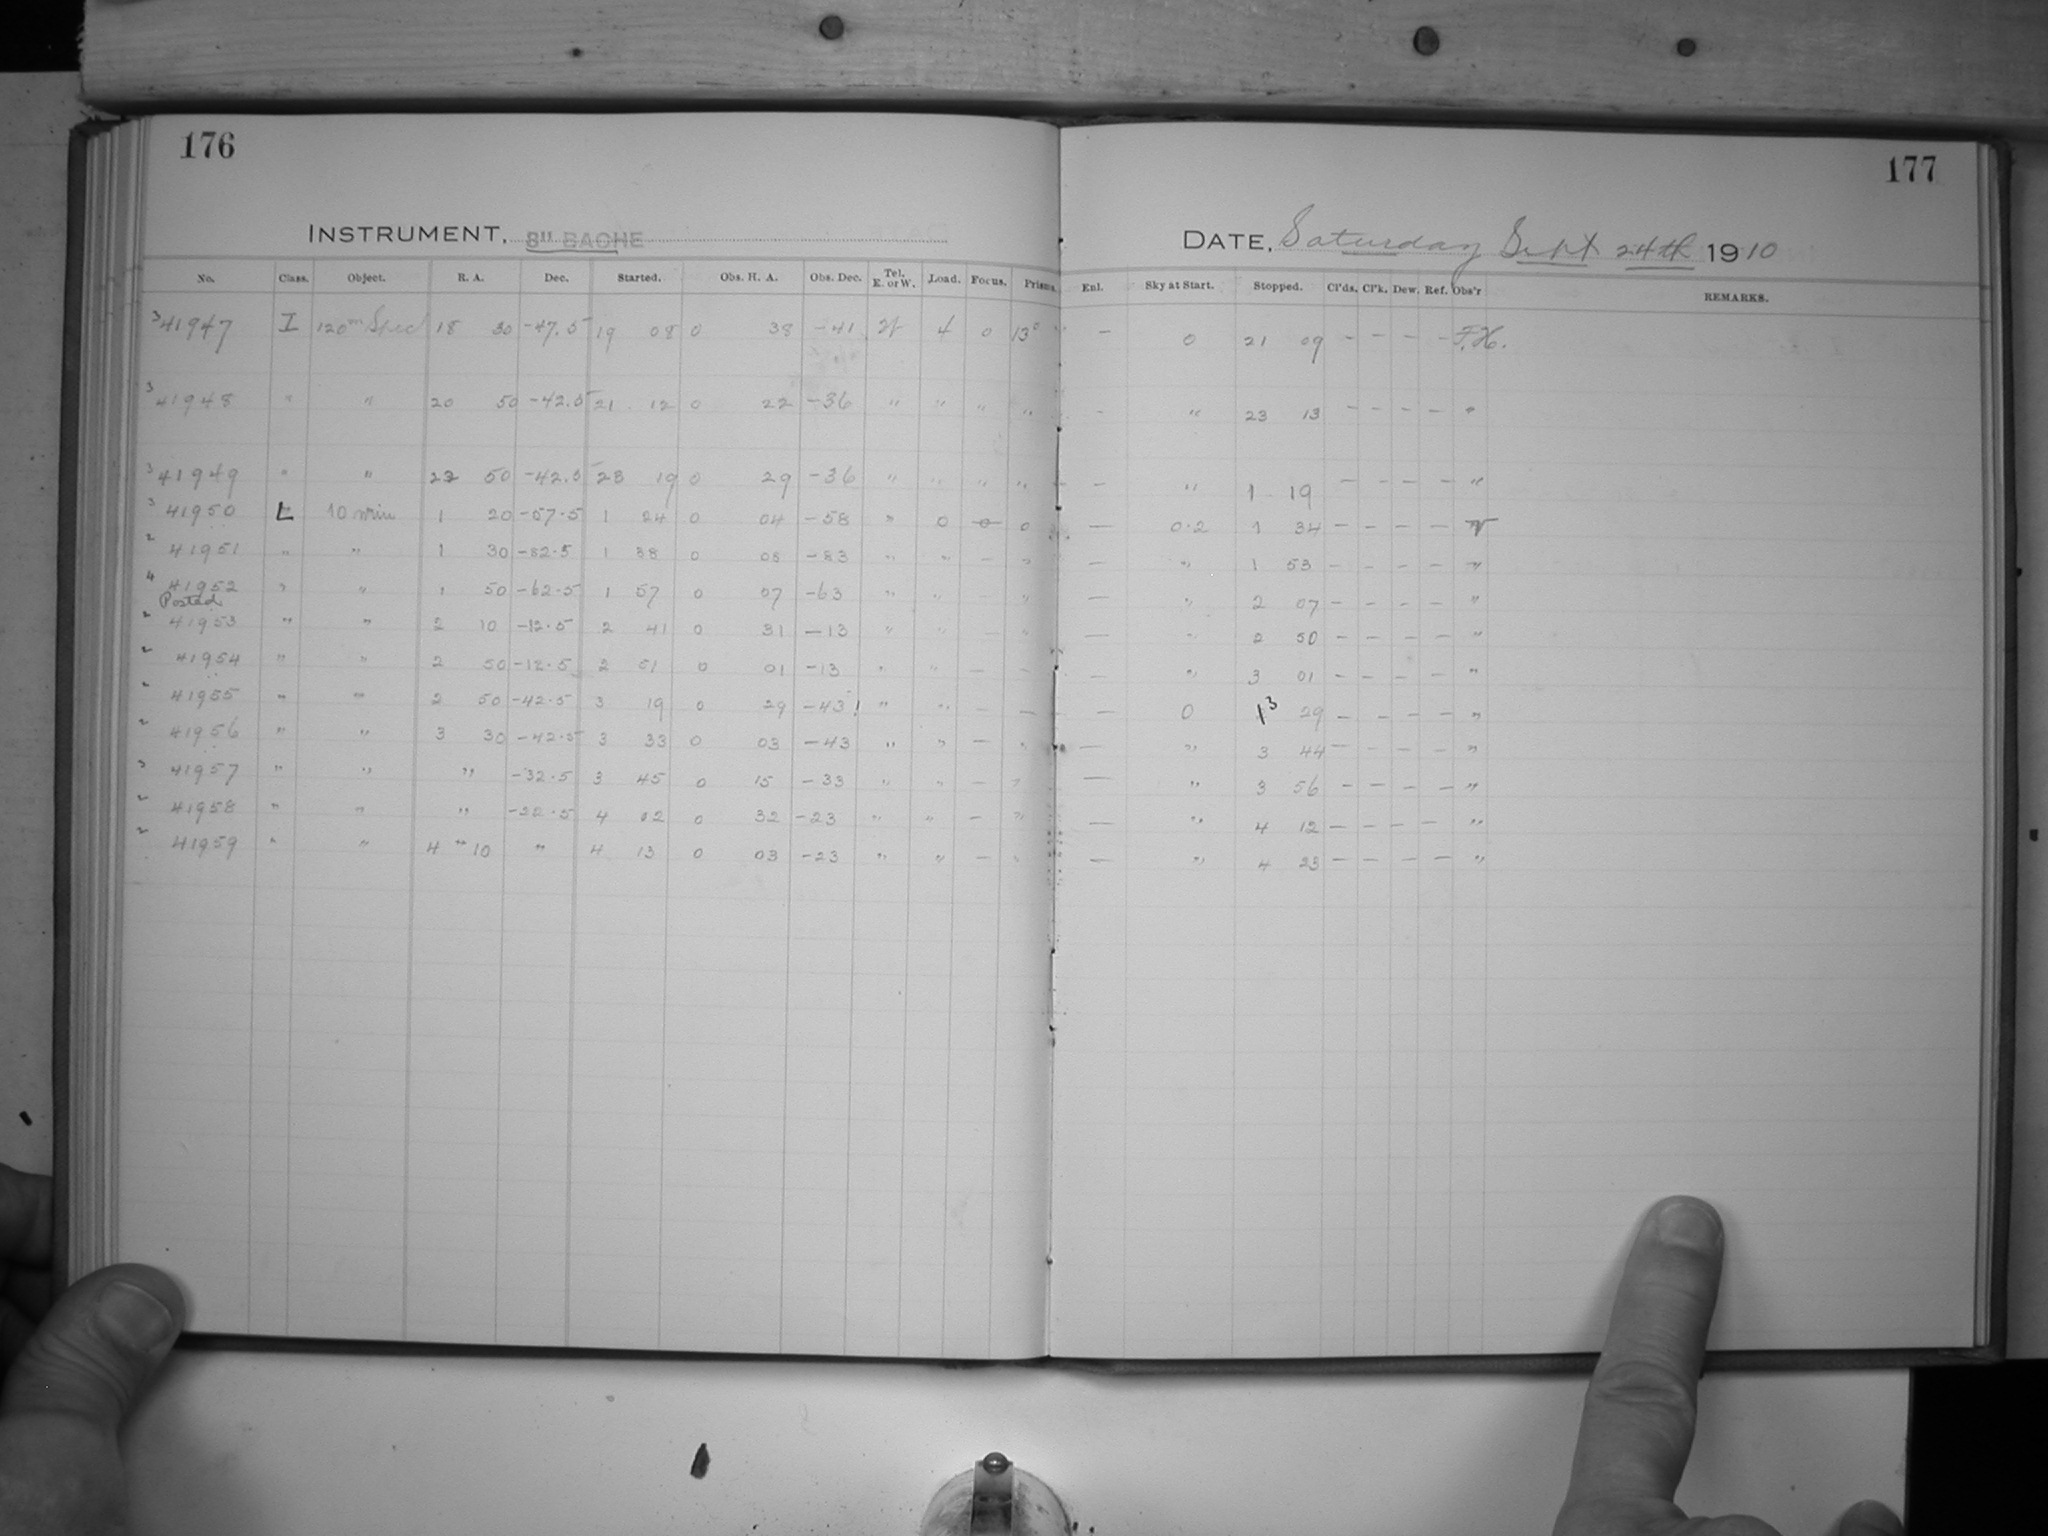 176
177
INSTRUMENT, 8" BACHE
DATE, Saturday Sept 24th 1910
No. Class. Object. R. A. Dec. Started. Obs. H. A. Obs. Dec. Tel. E. or W. Load. Focus. Prisms. Enl. Sky at Start. Stopped. Cl'ds. Cl'k. Dew. Ref. Obs'r REMARKS.
3 41947 I 120m Spec 18 30 -47.5 19 08 0 38 -41 W 4 0 13° " - 0 21 09 - - - - F.H.
3 41948 " " 20 50 -42.5 21 12 0 22 -36 " " " " - " 23 13 - - - - "
3 41949 " " 22 50 -42.5 23 19 0 29 -36 " " " " - - " 1 19 - - - - "
3 41950 L 10 min 1 20 -57.5 1 24 0 04 -58 " 0 0 0 - 0.2 1 34 - - - -
2 41951 " " 1 30 -82.5 1 38 0 08 -83 " " - " - " 1 53 - - - - "
4 41952 " " 1 50 -62.5 1 57 0 07 -63 " " - " - " 2 07 - - - - "
Posted
2 41953 " " 2 10 -12.5 2 41 0 31 -13 " " - " - " 2 50 - - - - "
2 41954 " " 2 50 -12.5 2 51 0 01 -13 " " - - - " 3 01 - - - - "
2 41955 " " 2 50 -42.5 3 19 0 29 -43! " " - - - 0 1 3 29 - - - - "
2 41956 " " 3 30 -42.5 3 33 0 03 -43 " " - " - " 3 44 - - - - "
3 41957 " " " -32.5 3 45 0 15 -33 " " - " - " 3 56 - - - - "
2 41958 " " " -22.5 4 02 0 32 -23 " " - " - " 4 12 - - - - "
2 41959 " " 4 10 " 4 13 0 03 -23 " " - " - " 4 23 - - - - "